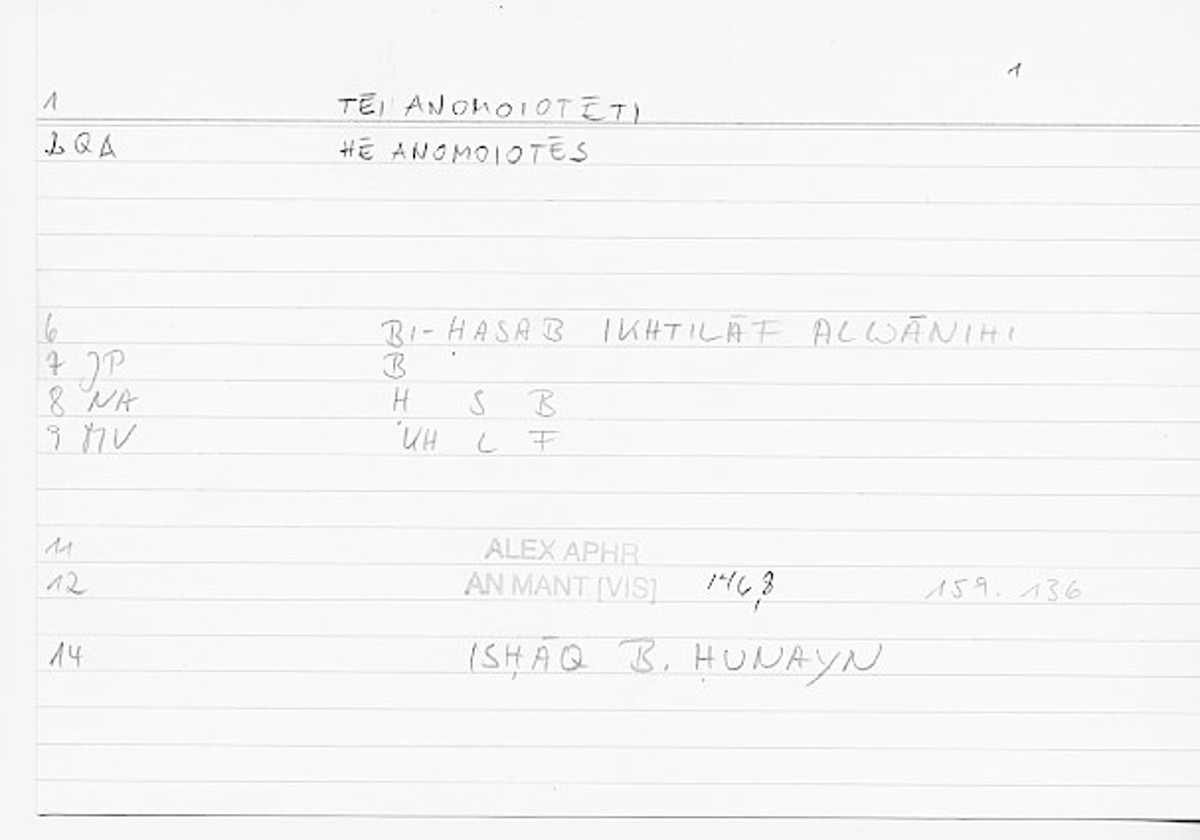 1
1 TĒI ANOMOIOTĒTI
2 QA HĒ ANOMOIOTĒS
6 BI-ḤASAB IKHTILĀF ALWĀNIHI
7 JP B
8 NA Ḥ S B
9 MV KH L F
11 ALEX APHR
12 AN MANT [VIS] 146,8 159. 136
14 ISḤĀQ B. ḤUNAYN